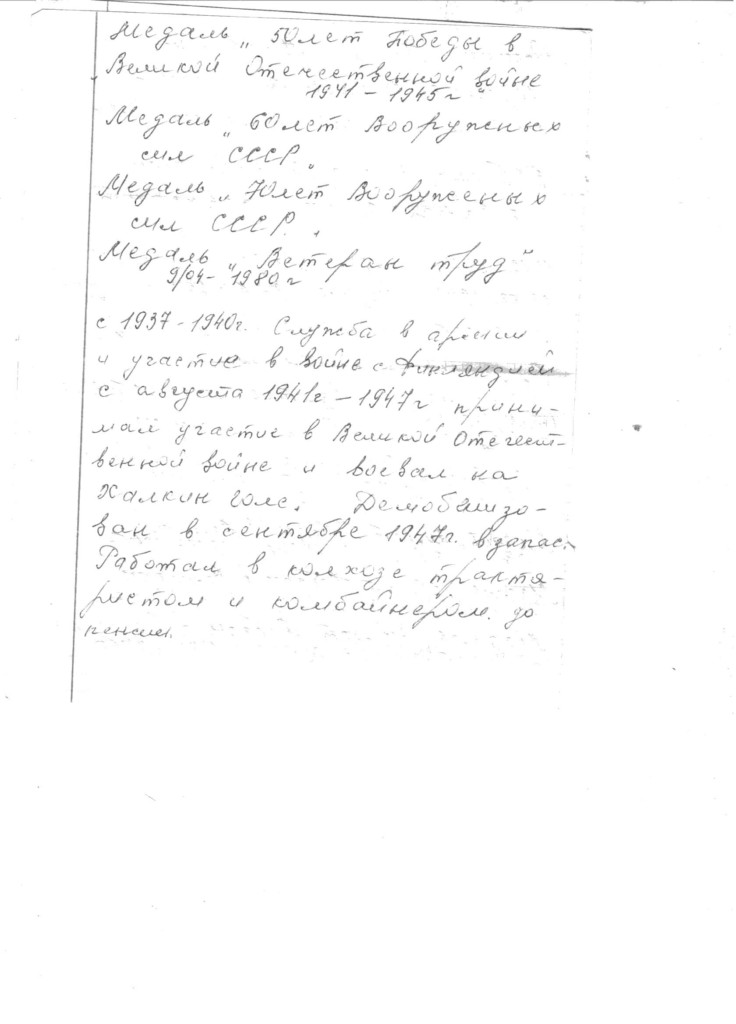 Медаль „ 50 лет Победы в
„Великой Отечественной войне
1941 – 1945 г "
Медаль „ 60 лет Вооруженых
сил СССР„
Медаль „ 70 лет Вооруженых
сил СССР„
Медаль „ Ветеран труд"
9/04 – 1980 г
с 1937 - 1940г. Служба в армии
и участие в войне с Финляндией
с августа 1941г – 1947г прини-
мал участие в Великой Отечест-
венной войне и воевал на
Халкин голе. Демобелизо-
ван в сентябре 1947г. в запас.
Работал в колхозе трактя-
ристом и комбайнёром. до
пенсии.